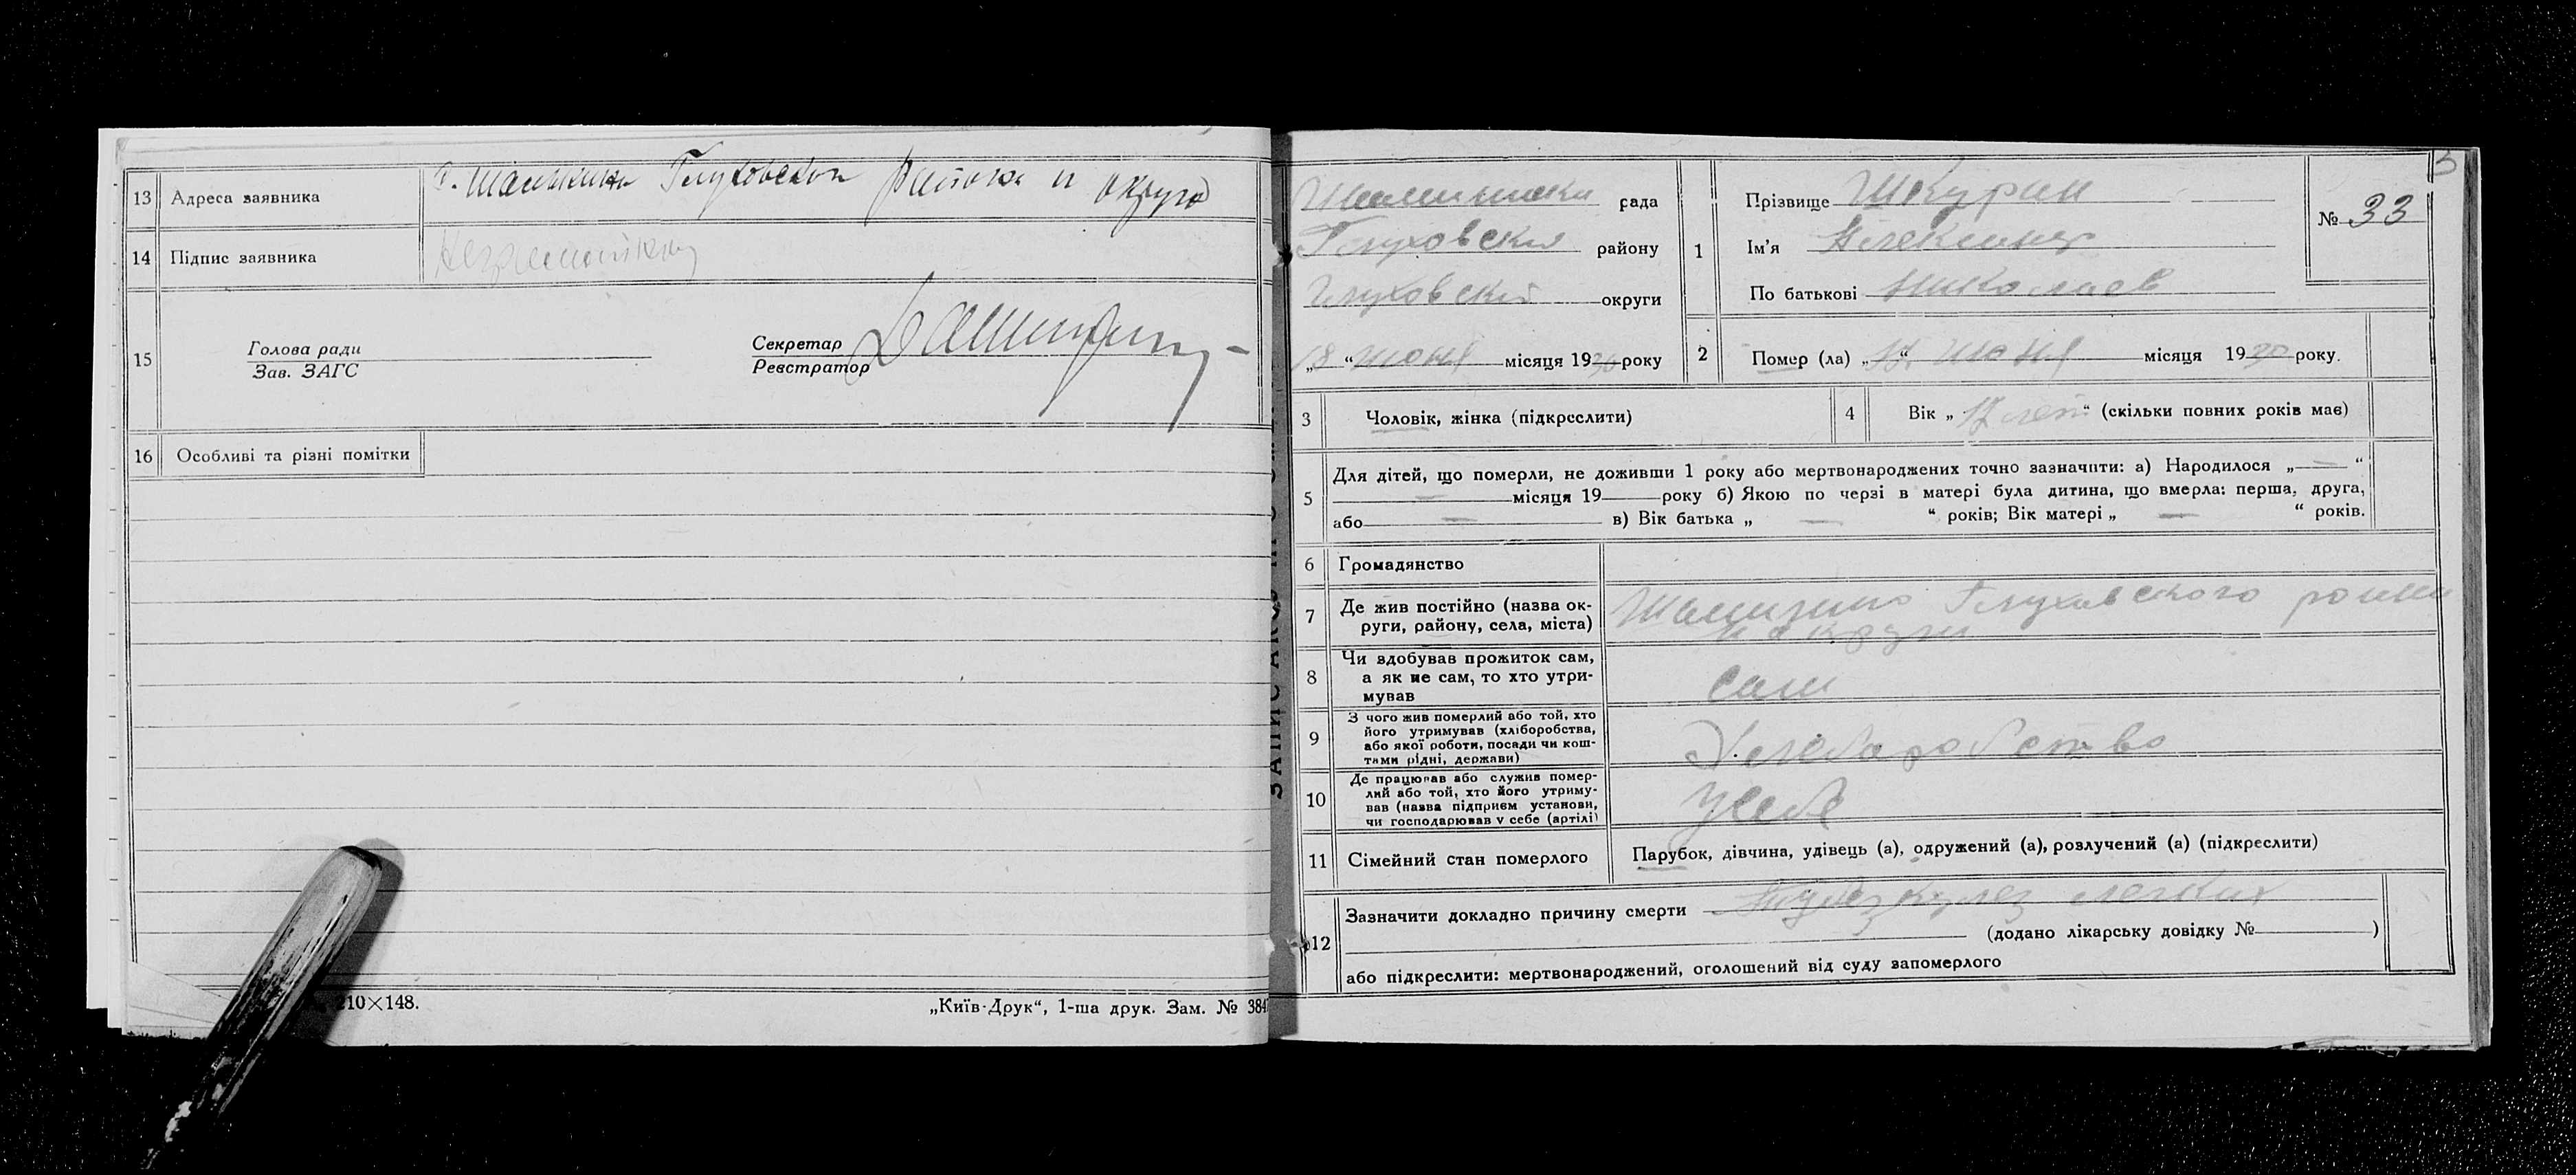 13 Адреса заявника Глуховского района и округа
14 Підпис заявника
15 Голова ради
Зав. ЗАГС
Секретар
Реєстратор
16 Особливі та різні помітки
210×148.
„Київ-Друк“, 1-ша друк. Зам. № 384
рада
Глуховский району
Глуховский округи
„18“ июня місяця 1930 року
1 Прізвище Шкурин
Ім'я Александр
По батькові Николаев
№ 33
2 Помер (ла) „ “ июня місяця 1930 року.
3 Чоловік, жінка (підкреслити)
4 Вік „ лет“ (скільки повних років має)
5 Для дітей, що померли, не доживши 1 року або мертвонароджених точно зазначити: а) Народилося „—“
— місяця 19 року б) Якою по черзі в матері була дитина, що вмерла: перша, друга,
або — в) Вік батька „ — “ років; Вік матері „ — “ років.
6 Громадянство
7 Де жив постійно (назва ок-
руги, району, села, міста)
Глуховского
и округи
8 Чи здобував прожиток сам,
а як не сам, то хто утри-
мував
сам
9 З чого жив померлий або той, хто
його утримував (хліборобства,
або якої роботи, посади чи кош-
тами рідні, держави)
Хлеборобство
10 Де працював або служив помер-
лий або той, хто його утриму-
вав (назва підприєм установи,
чи господарював у себе (артілі)
у себе
11 Сімейний стан померлого Парубок, дівчина, удівець (а), одружений (а), розлучений (а) (підкреслити)
12 Зазначити докладно причину смерти легких
(додано лікарську довідку № )
або підкреслити: мертвонароджений, оголошений від суду запомерлого